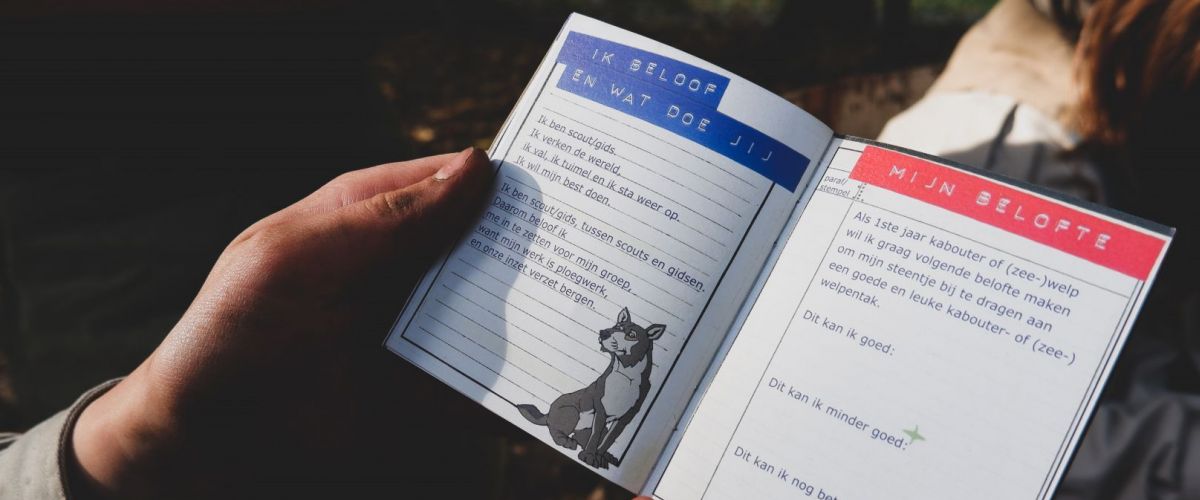 IK BELOOF
EN WAT DOE JIJ
Ik ben scout/gids.
Ik verken de wereld,
ik val, ik tuimel en ik sta weer op.
Ik wil mijn best doen.
Ik ben scout/gids, tussen scouts en gidsen.
Daarom beloof ik
me in te zetten voor mijn groep,
want mijn werk is ploegwerk,
en onze inzet verzet bergen.
paraf/
stempel
MIJN BELOFTE
Als 1ste jaar kabouter of (zee-)welp
wil ik graag volgende belofte maken
om mijn steentje bij te dragen aan
een goede en leuke kabouter- of (zee-)
welpentak.
Dit kan ik goed:
Dit kan ik minder goed:
Dit kan ik nog